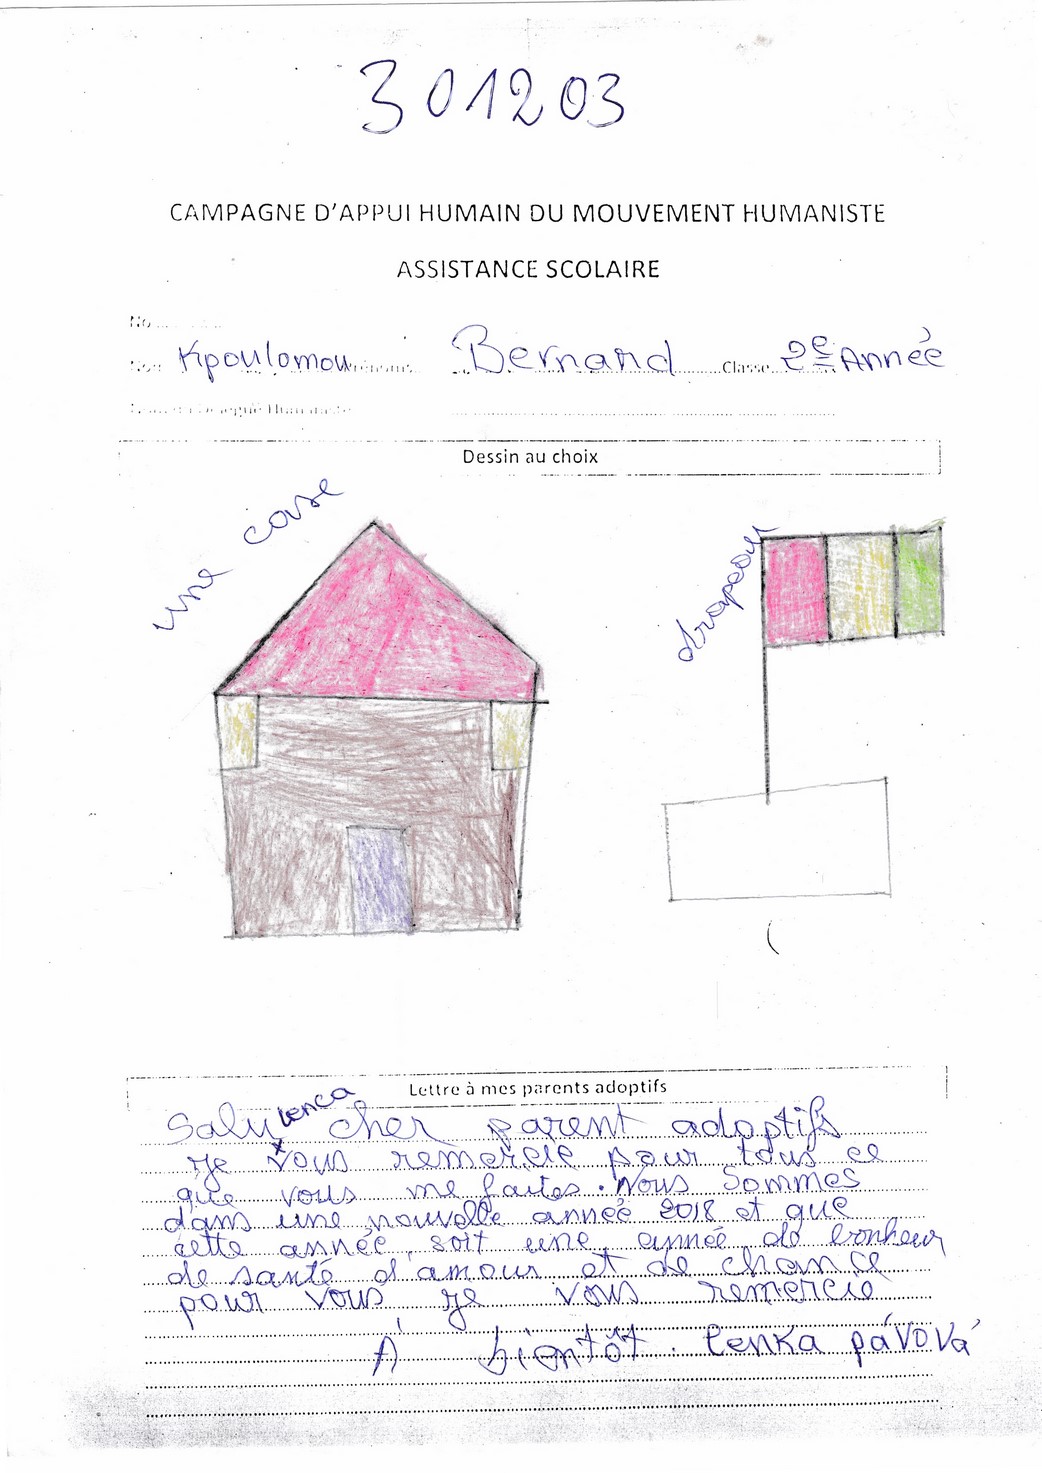 301203
CAMPAGNE D'APPUI HUMAIN DU MOUVEMENT HUMANISTE
ASSISTANCE SCOLAIRE
Kpoulomou Bernard Classe 2e Année
Dessin au choix
une case
drapeau
Lettre à mes parents adoptifs
Salu lenca cher parent adoptifs
je vous remercie pour tous ce
que vous me faites. Nous Sommes
dans une nouvelle année 2018 et que
cette année, soit une année de bonheur
de santé d'amour et de chance
pour vous je vous remercie
À bientôt. lenka pávová